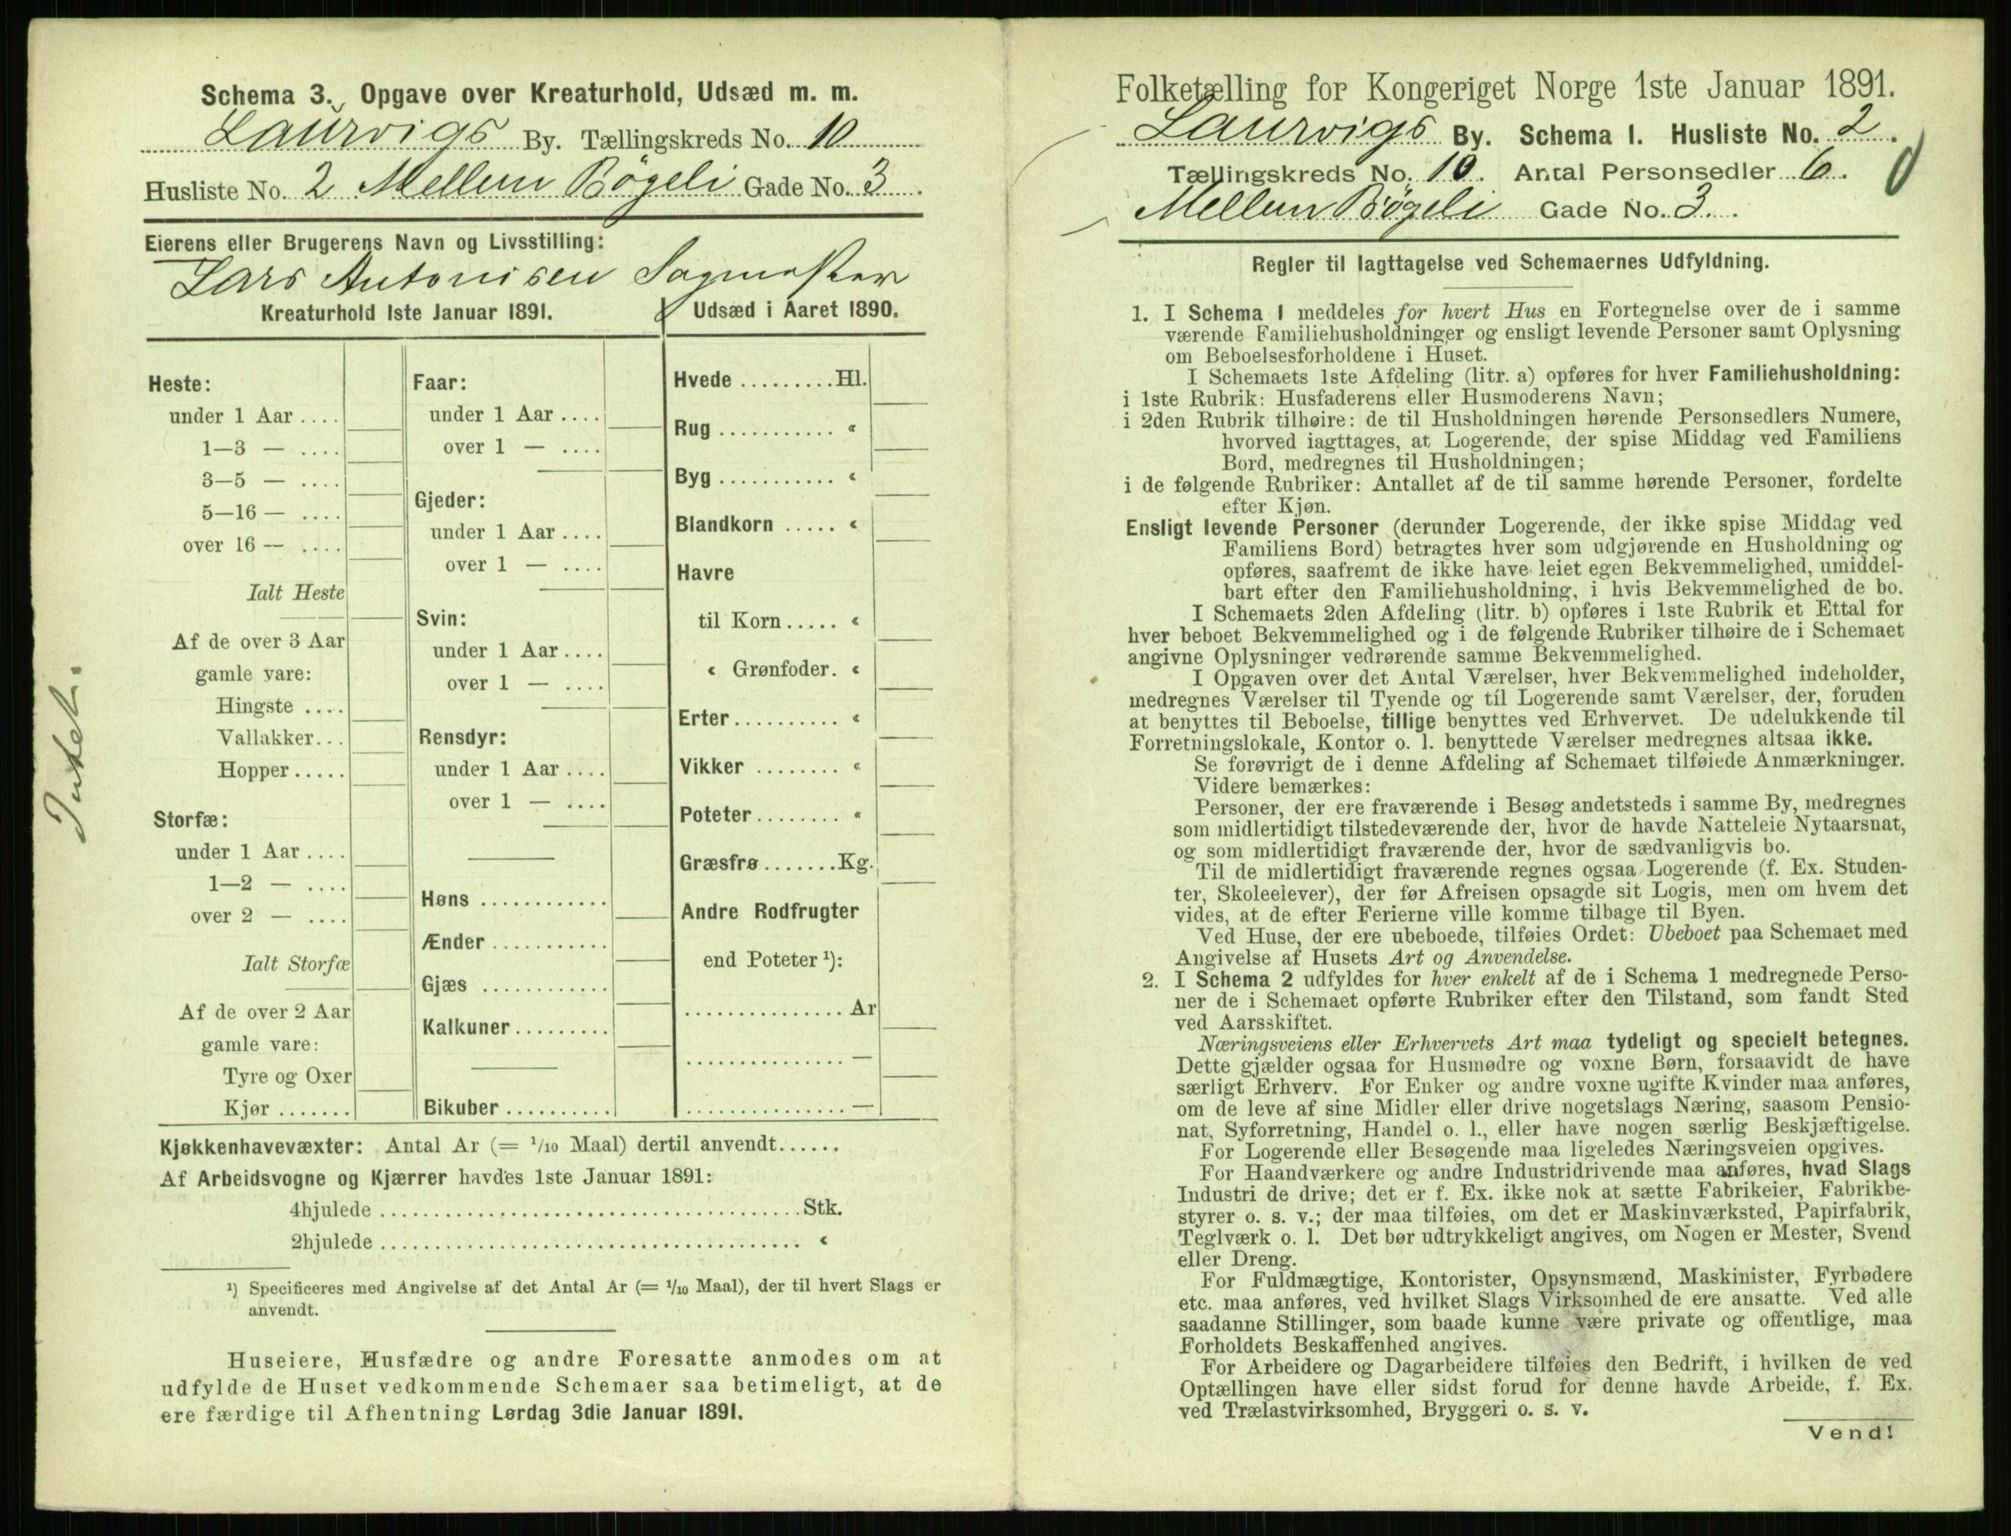 Schema 3. Opgave over Kreaturhold, Udsæd m. m.
Laurvigs By. Tællingskreds No. 10
Husliste No. 2 Mellem Bögeli Gade No. 3
Eierens eller Brugerens Navn og Livsstilling:
Lars Antonisen Sagmester
Kreaturhold 1ste Januar 1891.
Heste:
under 1 Aar ....
1—3 — ....
3—5 — ....
5—16 — ....
over 16 — ....
Ialt Heste
Af de over 3 Aar
gamle vare:
Hingste ....
Vallakker...
Hopper.....
Storfæ:
under 1 Aar ....
1—2 — ....
over 2 — ....
Ialt Storfæ
Af de over 2 Aar
gamle vare:
Tyre og Oxer
Kjør.......
Faar:
under 1 Aar ....
over 1 — ....
Gjeder:
under 1 Aar ....
over 1 — ....
Svin:
under 1 Aar ....
over 1 — ....
Rensdyr:
under 1 Aar ....
over 1 — ....
Høns ............
Ænder ...........
Gjæs ............
Kalkuner.........
Bikuber ..........
Udsæd i Aaret 1890.
Hvede .........Hl.
Rug ........... «
Byg ........... «
Blandkorn ..... «
Havre
til Korn..... «
« Grønfoder. «
Erter.......... «
Vikker ........ «
Poteter........ «
Græsfrø .......Kg.
Andre Rodfrugter
end Poteter ¹):
............... Ar
............... —
............... —
Kjøkkenhavevæxter: Antal Ar (= 1/10 Maal) dertil anvendt......
Af Arbeidsvogne og Kjærrer havdes 1ste Januar 1891:
4hjulede ....................................... Stk.
2hjulede ....................................... «
¹) Specificeres med Angivelse af det Antal Ar (= 1/10 Maal), der til hvert Slags er
anvendt.
Huseiere, Husfædre og andre Foresatte anmodes om at
udfylde de Huset vedkommende Schemaer saa betimeligt, at de
ere færdige til Afhentning Lørdag 3die Januar 1891.
Intet.
Folketælling for Kongeriget Norge 1ste Januar 1891.
Laurvigs By. Schema 1. Husliste No. 2.
Tællingskreds No. 10. Antal Personsedler 6.
Mellem Bögeli Gade No. 3.
Regler til Iagttagelse ved Schemaernes Udfyldning.
1. I Schema 1 meddeles for hvert Hus en Fortegnelse over de i samme
værende Familiehusholdninger og ensligt levende Personer samt Oplysning
om Beboelsesforholdene i Huset.
I Schemaets 1ste Afdeling (litr. a) opføres for hver Familiehusholdning:
i 1ste Rubrik: Husfaderens eller Husmoderens Navn;
i 2den Rubrik tilhøire: de til Husholdningen hørende Personsedlers Numere,
hvorved iagttages, at Logerende, der spise Middag ved Familiens
Bord, medregnes til Husholdningen;
i de følgende Rubriker: Antallet af de til samme hørende Personer, fordelte
efter Kjøn.
Ensligt levende Personer (derunder Logerende, der ikke spise Middag ved
Familiens Bord) betragtes hver som udgjørende en Husholdning og
opføres, saafremt de ikke have leiet egen Bekvemmelighed, umiddel-
bart efter den Familiehusholdning, i hvis Bekvemmelighed de bo.
I Schemaets 2den Afdeling (litr. b) opføres i 1ste Rubrik et Ettal for
hver beboet Bekvemmelighed og i de følgende Rubriker tilhøire de i Schemaet
angivne Oplysninger vedrørende samme Bekvemmelighed.
I Opgaven over det Antal Værelser, hver Bekvemmelighed indeholder,
medregnes Værelser til Tyende og til Logerende samt Værelser, der, foruden
at benyttes til Beboelse, tillige benyttes ved Erhvervet. De udelukkende til
Forretningslokale, Kontor o. l. benyttede Værelser medregnes altsaa ikke.
Se forøvrigt de i denne Afdeling af Schemaet tilføiede Anmærkninger.
Videre bemærkes:
Personer, der ere fraværende i Besøg andetsteds i samme By, medregnes
som midlertidigt tilstedeværende der, hvor de havde Natteleie Nytaarsnat,
og som midlertidigt fraværende der, hvor de sædvanligvis bo.
Til de midlertidigt fraværende regnes ogsaa Logerende (f. Ex. Studen-
ter, Skoleelever), der før Afreisen opsagde sit Logis, men om hvem det
vides, at de efter Ferierne ville komme tilbage til Byen.
Ved Huse, der ere ubeboede, tilføies Ordet: Ubeboet paa Schemaet med
Angivelse af Husets Art og Anvendelse.
2. I Schema 2 udfyldes for hver enkelt af de i Schema 1 medregnede Perso-
ner de i Schemaet opførte Rubriker efter den Tilstand, som fandt Sted
ved Aarsskiftet.
Næringsveiens eller Erhvervets Art maa tydeligt og specielt betegnes.
Dette gjælder ogsaa for Husmødre og voxne Børn, forsaavidt de have
særligt Erhverv. For Enker og andre voxne ugifte Kvinder maa anføres,
om de leve af sine Midler eller drive nogetslags Næring, saasom Pensio-
nat, Syforretning, Handel o. l., eller have nogen særlig Beskjæftigelse.
For Logerende eller Besøgende maa ligeledes Næringsveien opgives.
For Haandværkere og andre Industridrivende maa anføres, hvad Slags
Industri de drive; det er f. Ex. ikke nok at sætte Fabrikeier, Fabrikbe-
styrer o. s. v.; der maa tilføies, om det er Maskinværksted, Papirfabrik,
Teglværk o. l. Det bør udtrykkeligt angives, om Nogen er Mester, Svend
eller Dreng.
For Fuldmægtige, Kontorister, Opsynsmænd, Maskinister, Fyrbødere
etc. maa anføres, ved hvilket Slags Virksomhed de ere ansatte. Ved alle
saadanne Stillinger, som baade kunne være private og offentlige, maa
Forholdets Beskaffenhed angives.
For Arbeidere og Dagarbeidere tilføies den Bedrift, i hvilken de ved
Optællingen have eller sidst forud for denne havde Arbeide, f. Ex.
ved Trælastvirksomhed, Bryggeri o. s. v.
Vend!